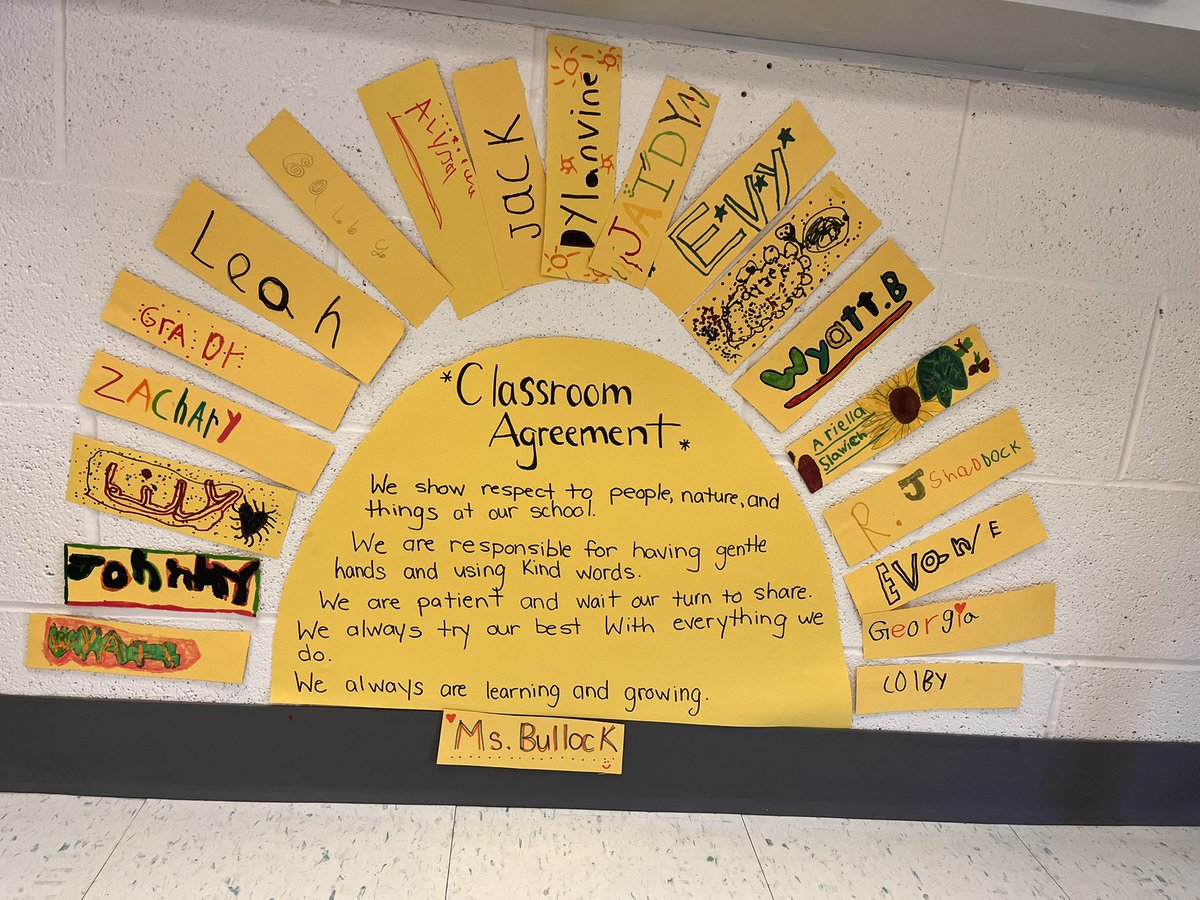 *Classroom
Agreement*
We show respect to people, nature, and
things at our school.
We are responsible for having gentle
hands and using kind words.
We are patient and wait our turn to share.
We always try our best With everything we
do.
We always are learning and growing.
Ms. Bullock
Johnny
Lily
ZAChArY
Leah
Alyssa
JacK
Dylanvine
JAIDYN
EVY
Wyatt.B
Ariella
Slawich
R. J Shaddock
Georgia
COlBY